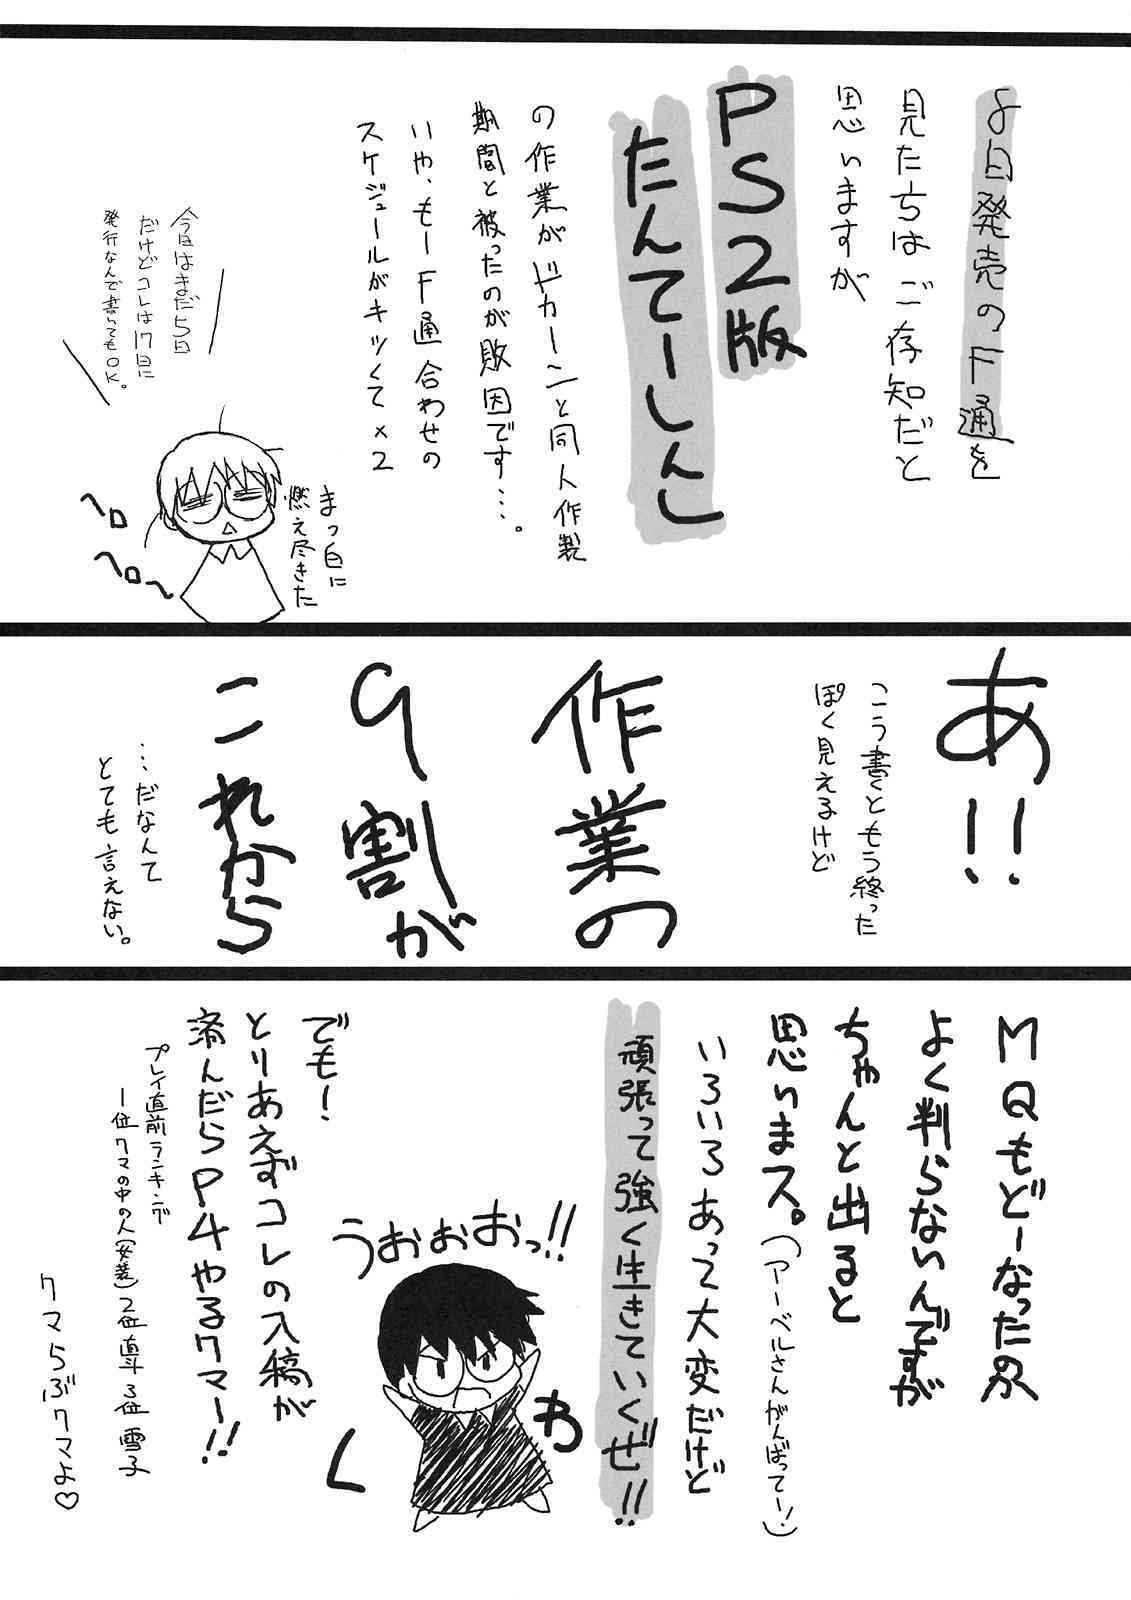 8日発売のF通を
見たちはご存知だと
思いますが
PS2版
たんてーしんし
の作業がドカーンと同人作製
期間と被ったのが敗因です…。
いや、もーF通合わせの
スケジュールがキツくて×2
まっ白に
燃え尽きた
今日はまだ5日
だけどコレは17日に
発行なんで書いてもOK。
ヘロ
ヘロ〜
あ!!
こう書くともう終った
ぽく見えるけど
作業の
9割が
これから
…だなんて
とても言えない。
MQもどーなったのか
よく判らないんですが
ちゃんと出ると
思いまス。(アーベルさんがんばってー!)
いろいろあって大変だけど
頑張って強く生きていくぜ!!
うおぉぉおっ!!
わ
く
でも!
とりあえずコレの入稿が
済んだらP4やるクマー!!
プレイ直前ランキング
1位クマの中の人(女装)2位直斗3位雪子
クマらぶクマよ♡